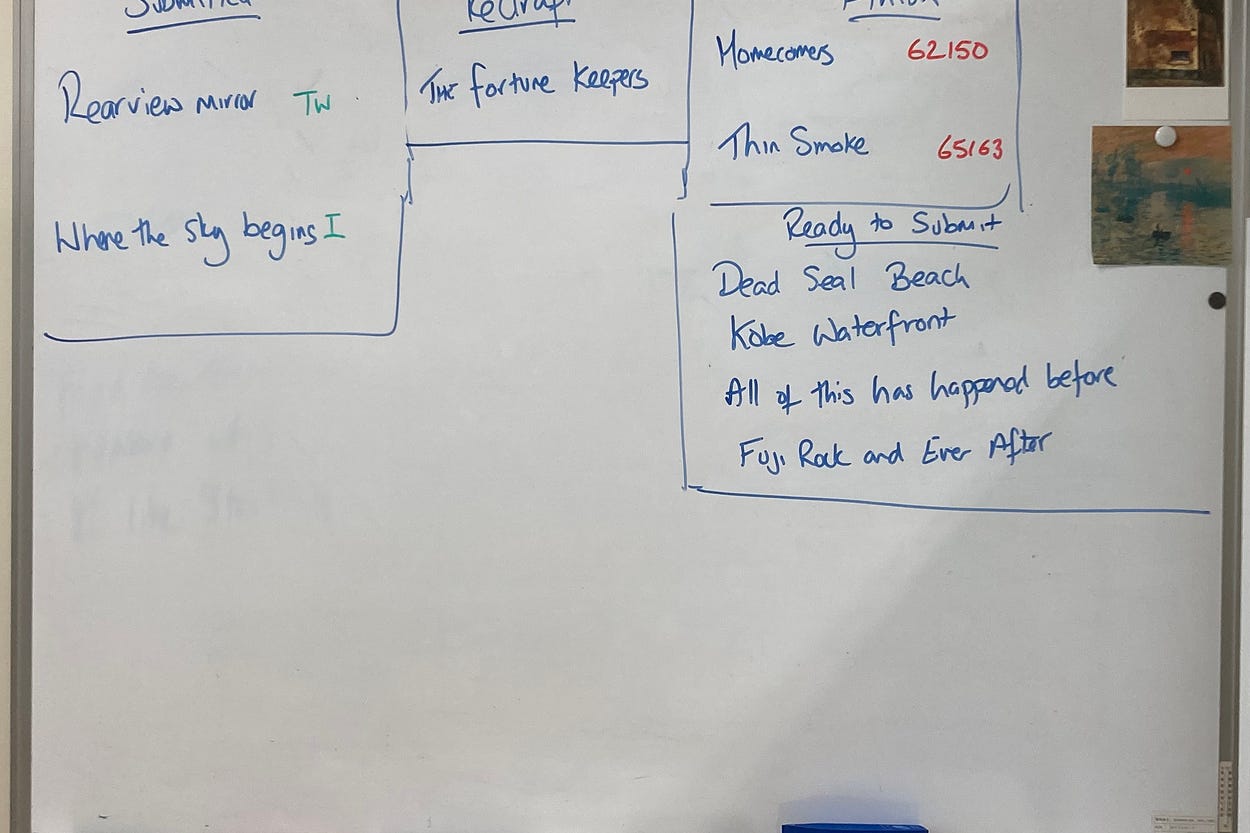 Submitted
Rearview Mirror TW
Where the sky begins I
ReDraft
The Fortune Keepers
Homecomers 62150
Thin Smoke 65163
Ready to Submit
Dead Seal Beach
Kobe Waterfront
All of this has happened before
Fuji Rock and Ever After